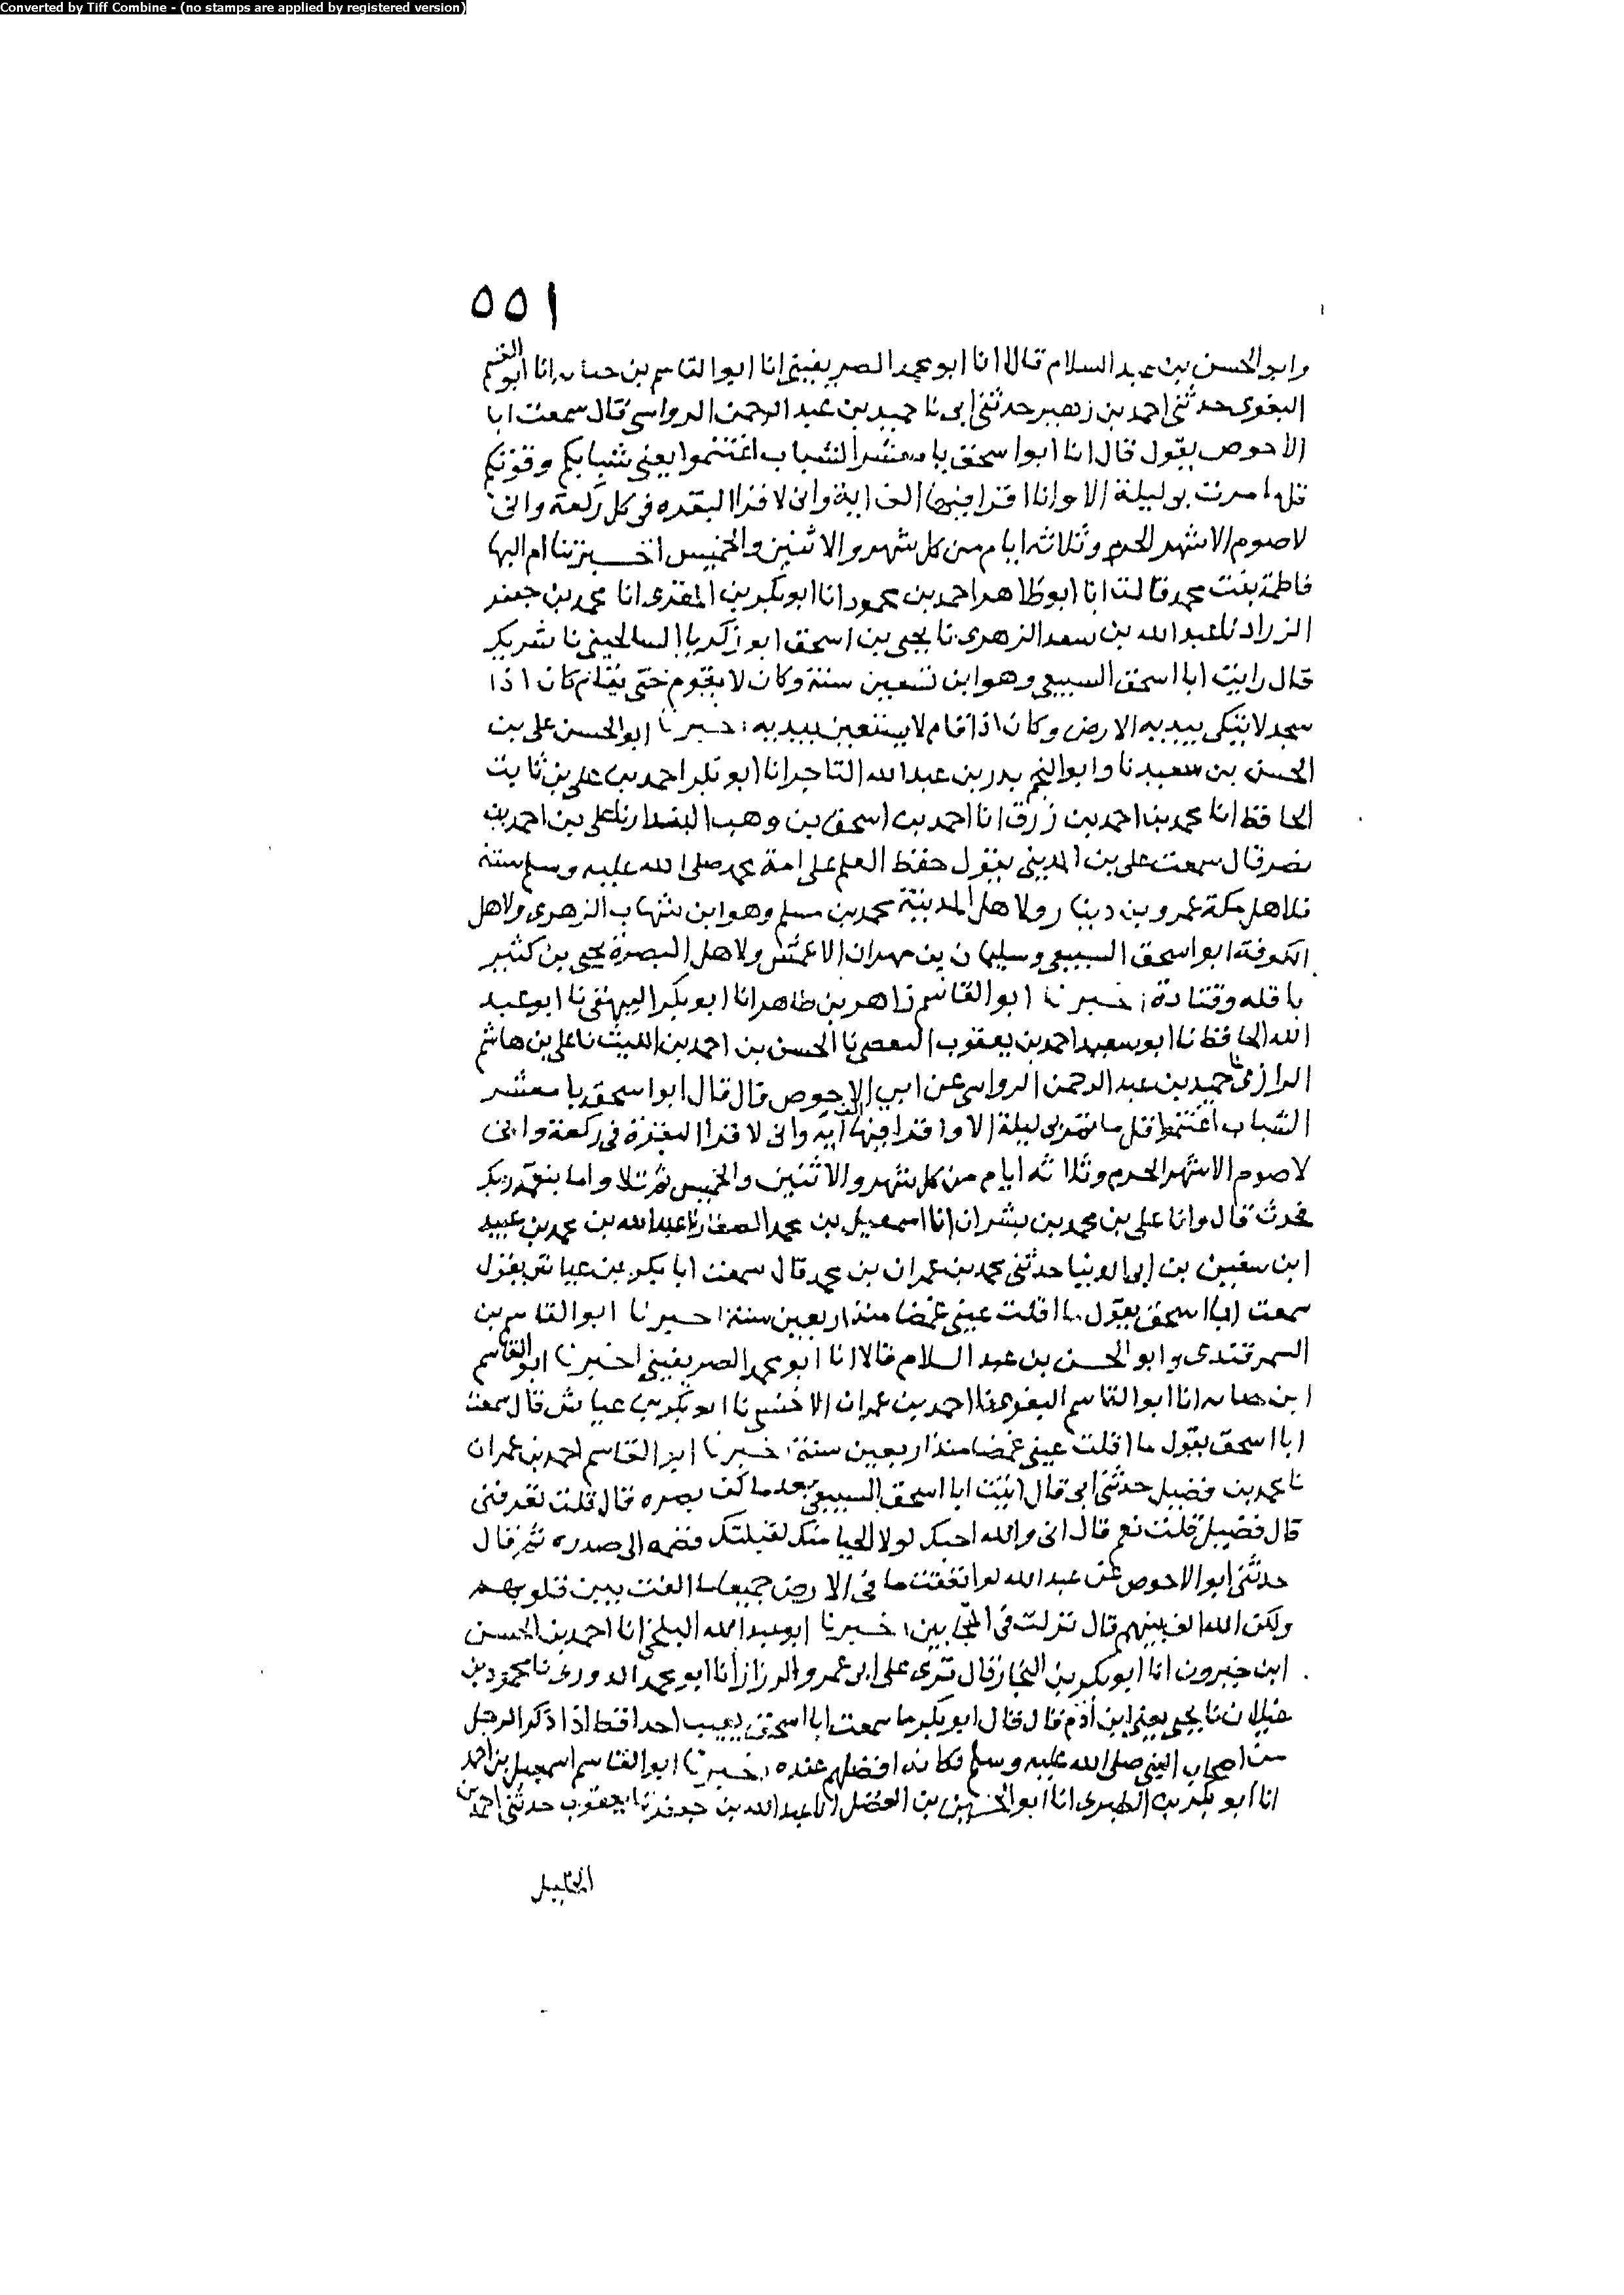 Converted by Tiff Combine - (no stamps are applied by registered version)
٥٥١
وابو الحسن بن عبد السلام قالا انا ابو محمد الصريفيني انا ابوالقاسم بن حبابه انا ابو القسم
البغوى حدثنى احمد بن زهير حدثنى ابى نا حميد بن عبد الرحمن الرواسى قال سمعت ابا
الاحوص يقول قال انا ابوا سحق يا معشر الشباب اغتنموا يعنى شبابكم وقوتكم
قل ما مرت بو ليلة الا وانا اقرا فيها الف اية وانى لا قرا البقره فى كل ركعة وانى
لاصوم الاشهر الحرم وثلاثه ايام من كل شهر والاثنين والخميس اخبرتنا ام البها
فاطمة بنت محمد قالت انا ابوطاهر احمد بن محمود انا ابوبكر بن المقرى انا محمد بن جعفر
الزراد نا عبد الله بن سعد الزهرى نا يحيى بن اسحق ابو زكريا السالحينى نا شريك
قال رايت ابا اسحق السبيعى وهو ابن تسعين سنة وكان لا يقوم حتى يقام كان اذا
سجد لا يتكى بيديه الارض وكان اذا قام لا يستعين بيديه اخبرنا ابو الحسن على بن
الحسن بن سعيد نا وابو النجم بدر بن عبد الله التاجر انا ابو بكر احمد بن على بن ثابت
الحافظ انا محمد بن احمد بن زرق انا احمد بن اسحق بن وهب البندار نا على بن احمد بن
نضر قال سمعت على بن المدينى يقول حفظ العلم على امة محمد صلى الله عليه وسلم ستة
فلاهل مكة عمرو بن دينار ولاهل المدينة محمد بن مسلم وهو ابن شهاب الزهرى ولاهل
الكوفة ابوا سحق السبيعى وسليمان بن مهران الاعمش ولاهل البصرة يحيى بن كثير
باقله وقتادة اخبرنا ابو القاسم زاهر بن طاهر انا ابو بكر البيهقى نا ابو عبد
الله الحافظ نا ابو سعيد احمد بن يعقوب نا الحسن بن احمد بن الليث نا على بن هاشم
الرازى نا حميد بن عبد الرحمن الرواسى عن ابي الاحوص قال قال ابوا سحق يا معشر
الشباب اغتنموا قل ما تمر بى ليلة الا واقرا فيها الف آية وانى لا قرا البقرة فى ركعة وانى
لاصوم الاشهر الحرم وثلاثه ايام من كل شهر والاثنين والخميس ثم تلا واما بنعمة ربك
فحدث قال وانا على بن محمد بن بشران انا اسمعيل بن محمد الصفار نا عبد الله بن محمد بن عبيد
ابن سفين بن ابى الدنيا حدثنى محمد بن عمران بن محمد قال سمعت ابا بكر بن عياش يقول
سمعت ابا اسحق يقول ما اقلت عينى غمضا منذ اربعين سنة اخبرنا ابو القاسم بن
السمرقندى وابو الحسن بن عبد السلام قالا انا ابو محمد الصريفينى اخبرنا ابو القاسم
ابن حبابه انا ابو القاسم البغوى نا احمد بن عمران الاخنسى نا ابو بكر بن عياش قال سمعت
ابا اسحق يقول ما اقلت عينى غمضا منذ اربعين سنة اخبرنا ابو القاسم احمد بن عمران
نا محمد بن فضيل حدثنى ابى قال اتيت ابا اسحق السبيعى بعد ما كف بصره قال قلت تعرفنى
قال فضيل قلت نعم قال انى والله احبك لولا الحيا منك لقبلتك فضمه الى صدره ثم قال
حدثنى ابو الاحوص عن عبد الله لو انفقت ما فى الارض جميعا ما الفت بين قلوبهم
ولكن الله الف بينهم قال نزلت فى المتحابين اخبرنا ابو عبد الله البلخى انا احمد بن الحسن
ابن خيرون انا ابو بكر بن النجار قال قرى على ابى عمرو الرزاز انا ابو محمد الدورى نا محمود بن
غيلان نا يحيى يعنى ابن آدم قال قال ابو بكر ما سمعت ابا اسحق يعيب احدا قط اذا ذكر الرجل
من اصحاب النبى صلى الله عليه وسلم فكانه افضلهم عنده اخبرنا ابو القاسم اسمعيل بن احمد
انا ابو بكر بن الطبرى انا ابو الحسين بن الفضل انا عبد الله بن جعفر نا يعقوب حدثنى احمد بن
الخليل